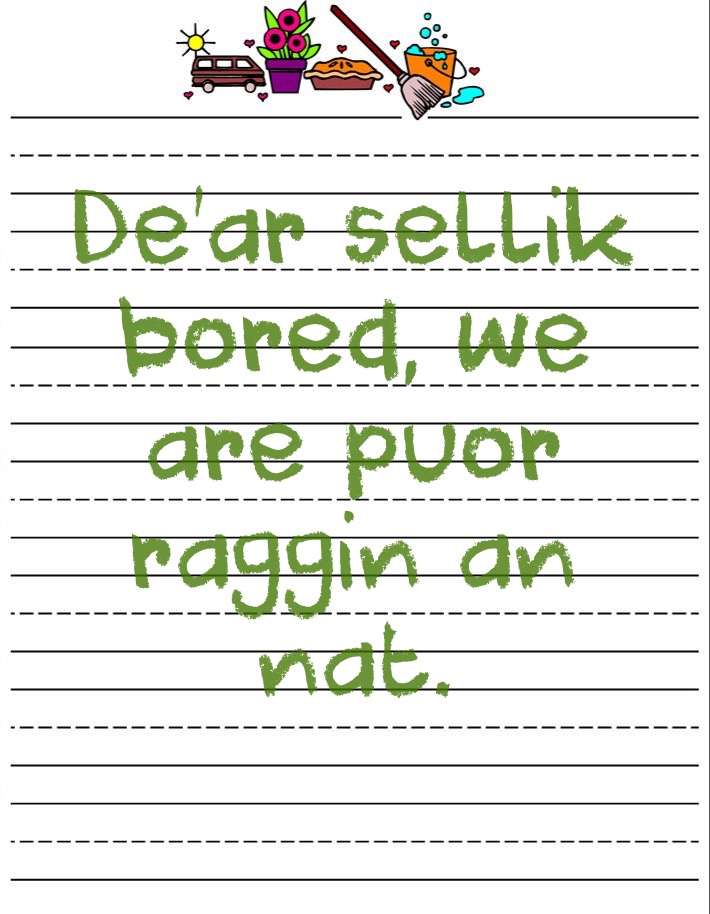 De'ar sellik
bored, we
are puor
raggin an
nat.